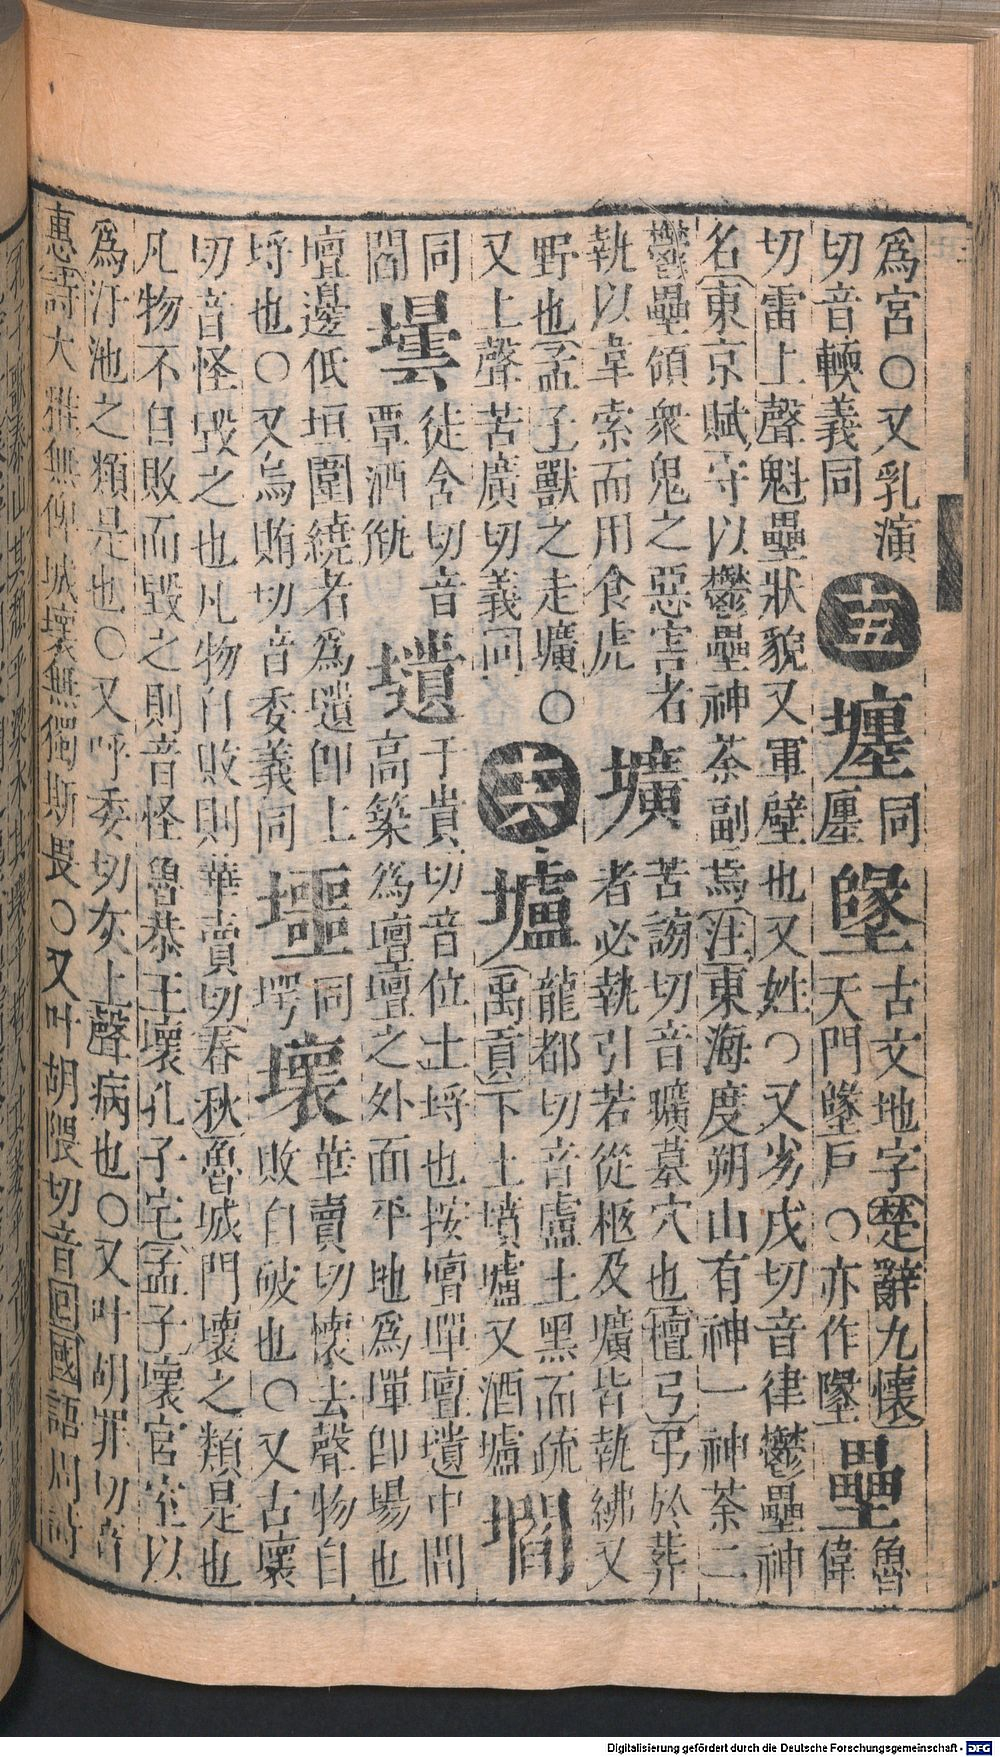 爲宮○又乳演
切音輭義同
十五
壥
同
廛
墬
古文地字楚辭九懷
天門墬戶○亦作墬
壘
魯
偉
切雷上聲魁壘狀貌又軍壁也又姓○又劣戌切音律鬱壘神
名東京賦守以鬱壘神荼副焉注東海度朔山有神一神荼二
鬱壘領衆鬼之惡害者
執以葦索而用食虎
壙
苦謗切音曠墓穴也檀弓弔於葬
者必執引若從柩及壙皆執紼又
野也孟子獸之走壙○
又上聲苦廣切義同
十六
壚
龍都切音盧土黑而疏
禹貢下土墳壚又酒壚
壛
同
閻
壜
徒含切音
覃酒瓶
壝
于貴切音位土埒也按壇墠壇壝中間
高築爲壇壇之外面平地爲墠卽場也
壇邊低垣圍繞者爲壝卽上
埒也○又烏賄切音委義同
同
堮
壞
華賣切懷去聲物自
敗自破也○又古壞
切音怪毀之也凡物自敗則華賣切春秋魯城門壞之類是也
凡物不自敗而毀之則音怪魯恭王壞孔子宅孟子壞宮室以
爲汙池之類是也○又呼委切灰上聲病也○又叶胡罪切音
惠詩大雅無俾城壞無獨斯畏○又叶胡隈切音回國語周詩
Digitalisierung gefördert durch die Deutsche Forschungsgemeinschaft - DFG